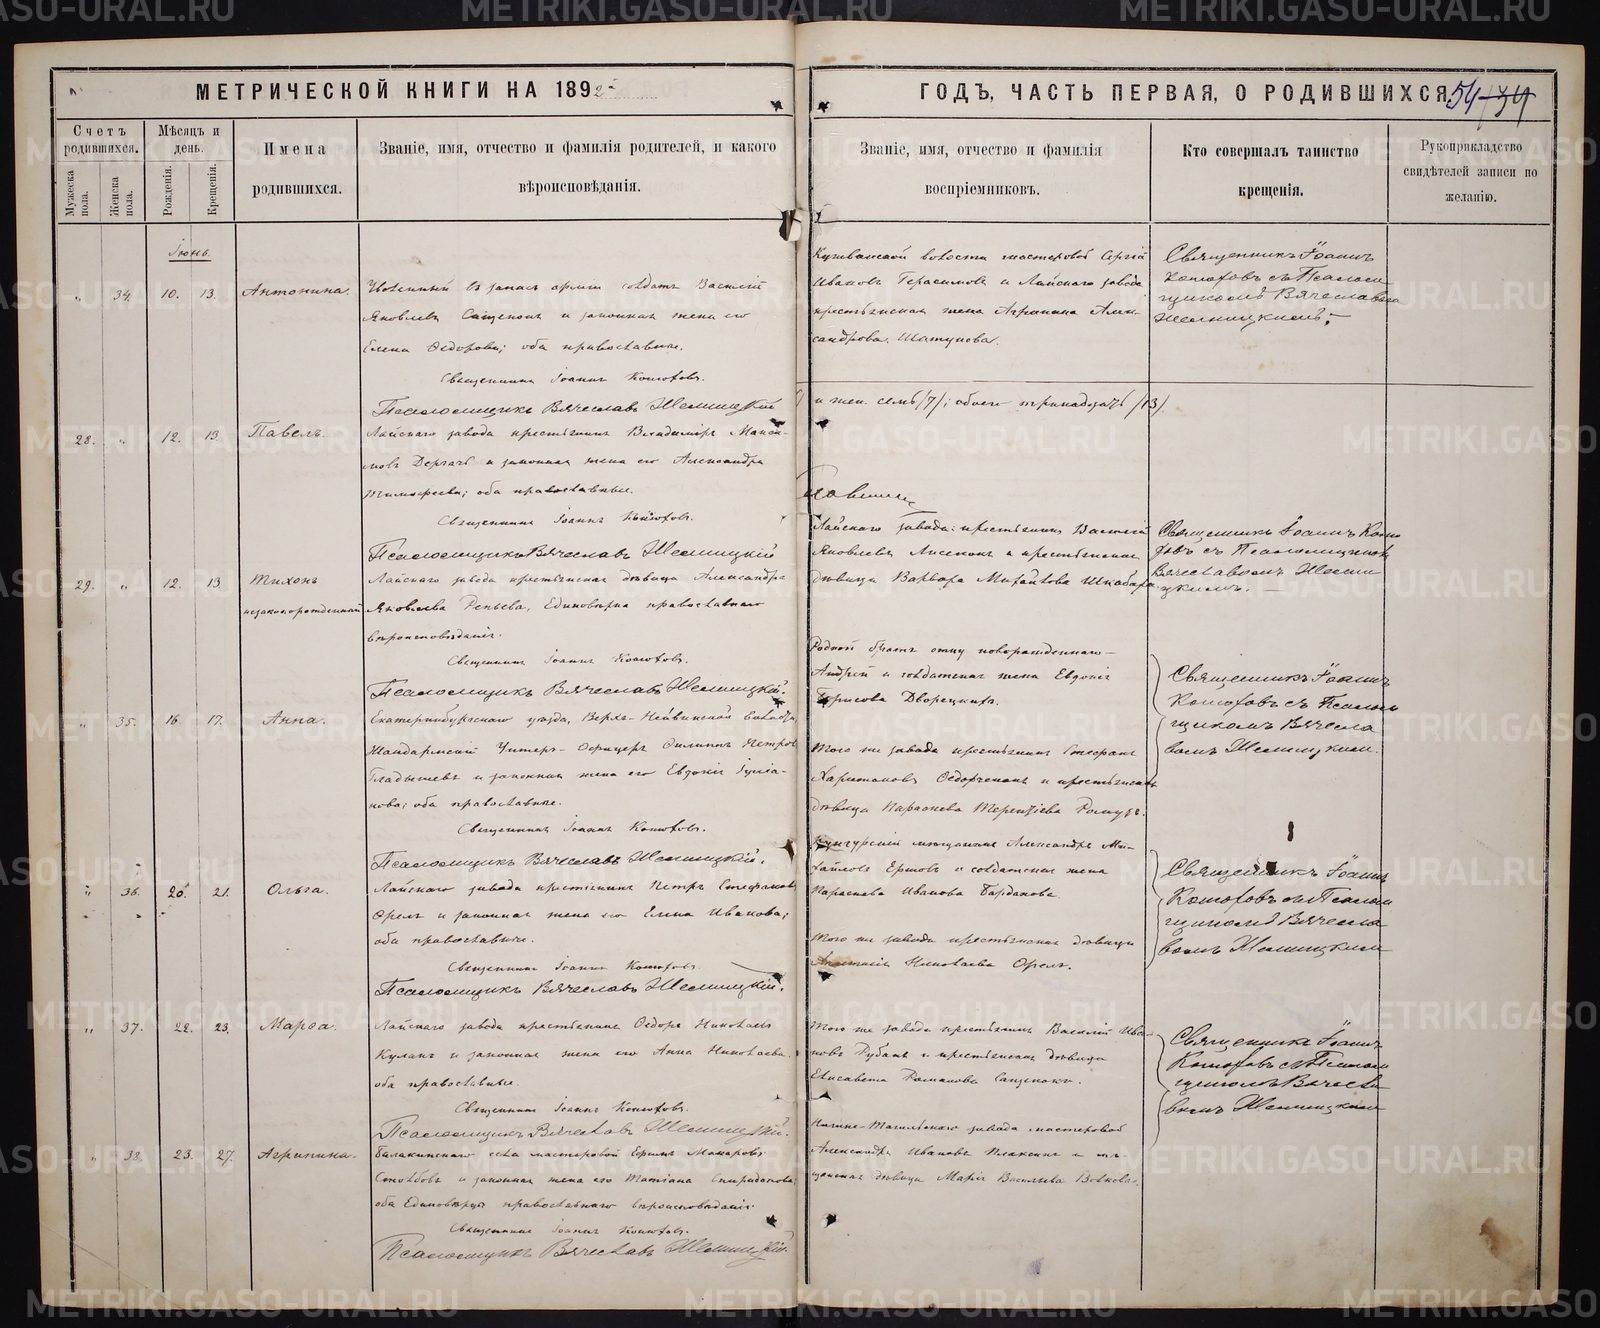 МЕТРИЧЕСКОЙ КНИГИ НА 1892
Счетъ родившихся.
Мужеска пола.
Женска пола.
Мѣсяцъ и день.
Рожденія.
Крещенія.
Имена родившихся.
Званіе, имя, отчество и фамилія родителей, и какого вѣроисповѣданія.
Іюнь.
" 34. 10. 13. Антонина.
Уволенный въ запасъ арміи солдатъ Василій
Яковлевъ и законная жена его
Елена Ѳедорова; оба православные.
Священникъ Іоаннъ Конюховъ.
Псаломщикъ Вячеславъ
28. " 12. 13. Павелъ.
Лайскаго завода крестьянинъ Владиміръ Макси-
мовъ Дергачъ и законная жена его Александра
Тимофеева; оба православные.
Священникъ Іоаннъ Конюховъ.
Псаломщикъ Вячеславъ
29. " 12. 13. Тихонъ
незаконнорожденный
Лайскаго завода крестьянская дѣвица Александра
Яковлева Репьева, Единовѣрка православнаго
вѣроисповѣданія.
Священникъ Іоаннъ Конюховъ.
Псаломщикъ Вячеславъ
" 35. 16. 17. Анна.
Екатеринбургскаго уѣзда, Верхъ-Нейвинской волости,
Жандармскій Унтеръ-Офицеръ Филиппъ Петровъ
Гладышевъ и законная жена его Евдокія Іуліа-
нова; оба православные.
Священникъ Іоаннъ Конюховъ.
Псаломщикъ Вячеславъ
" 36. 20. 21. Ольга.
Лайскаго завода крестьянинъ Петръ Стефановъ
Орелъ и законная жена его Елена Иванова;
оба православные.
Священникъ Іоаннъ Конюховъ.
Псаломщикъ Вячеславъ
" 37. 22. 23. Марѳа.
Лайскаго завода крестьянинъ Ѳедоръ Николаевъ
Кулакъ и законная жена его Анна Николаева,
оба православные.
Священникъ Іоаннъ Конюховъ.
Псаломщикъ Вячеславъ
" 38. 23. 27. Агрипина.
Балакинскаго села мастеровой Ефимъ Макаровъ
Столбовъ и законная жена его Татіана Спиридонова,
оба Единовѣрцы православнаго вѣроисповѣданія.
Священникъ Іоаннъ Конюховъ.
Псаломщикъ Вячеславъ
ГОДЪ, ЧАСТЬ ПЕРВАЯ, О РОДИВШИХСЯ
54
Званіе, имя, отчество и фамилія воспріемниковъ.
Кто совершалъ таинство крещенія.
Рукоприкладство свидѣтелей записи по желанію.
Кушвинской волости мастеровой Сергій
Ивановъ Герасимовъ и Лайскаго завода
крестьянская жена Агрипина Алек-
сандрова Шатунова.
Священникъ Іоаннъ
Конюховъ съ Псалом
щикомъ Вячеславомъ
и жен. семь /7/; обоего тринадцать /13/.
Лайскаго завода: крестьянинъ Василій
Яковлевъ Лисенокъ и крестьянская
дѣвица Варвара Михайлова
Священникъ Іоаннъ Коню
ховъ съ Псаломщикомъ
Вячеславомъ
Родной братъ отцу новорожденнаго
Андрей и солдатская жена Евдокія
Борисова Дворецкихъ.
Священникъ Іоаннъ
Конюховъ съ Псалом
щикомъ Вячесла
вомъ
Того же завода крестьянинъ Стефанъ
Харитоновъ Ѳедорченокъ и крестьянская
дѣвица Параскева Терентіева
Кунгурскій мѣщанинъ Александръ Ми-
хайловъ Ершовъ и солдатская жена
Параскева Иванова
Священникъ Іоаннъ
Конюховъ съ Псалом
щикомъ Вячесла
вомъ
Того же завода крестьянская дѣвица
Николаева Орелъ.
Того же завода крестьянинъ Василій Ива-
новъ Рубанъ и крестьянская дѣвица
Елисавета Романова
Священникъ Іоаннъ
Конюховъ съ Псалом
щикомъ Вячесла
вомъ
Нижне-Тагильскаго завода мастеровой
Александръ Ивановъ Плаксинъ и мѣ-
щанская дѣвица Марія Васильева Волкова.
METRIKI.GASO-URAL.RU